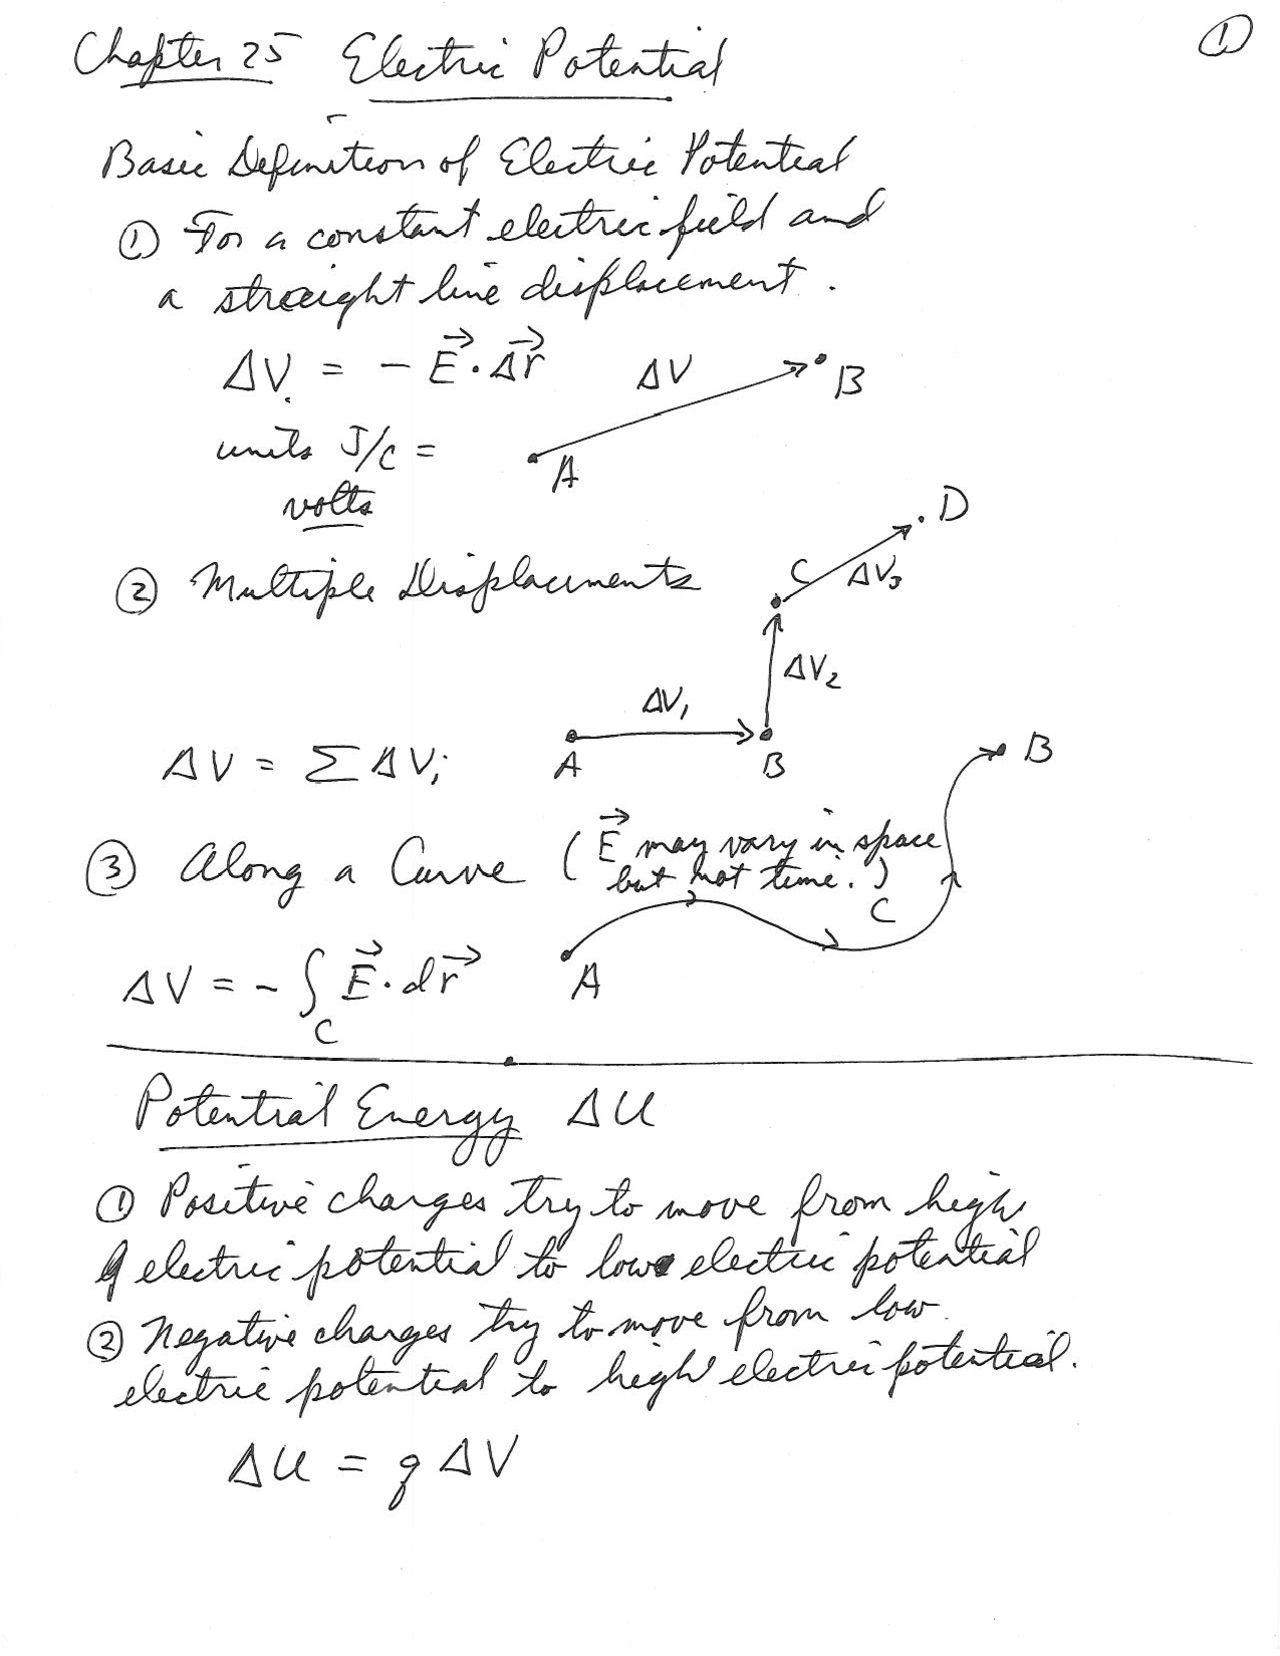 Chapter 25 Electric Potential
①
Basic Definition of Electric Potential
① For a constant electric field and
a straight line displacement.
ΔV = - E⃗ · Δr⃗
ΔV
B
A
units J/C =
volts
② Multiple Displacements
D
C
ΔV₃
ΔV₂
ΔV₁
A
B
ΔV = Σ ΔVᵢ
B
③ Along a Curve (E⃗ may vary in space
but not time.)
C
A
ΔV = - ∫ E⃗ · dr⃗
C
Potential Energy ΔU
① Positive charges try to move from high
electric potential to low electric potential
② Negative charges try to move from low
electric potential to high electric potential.
ΔU = q ΔV